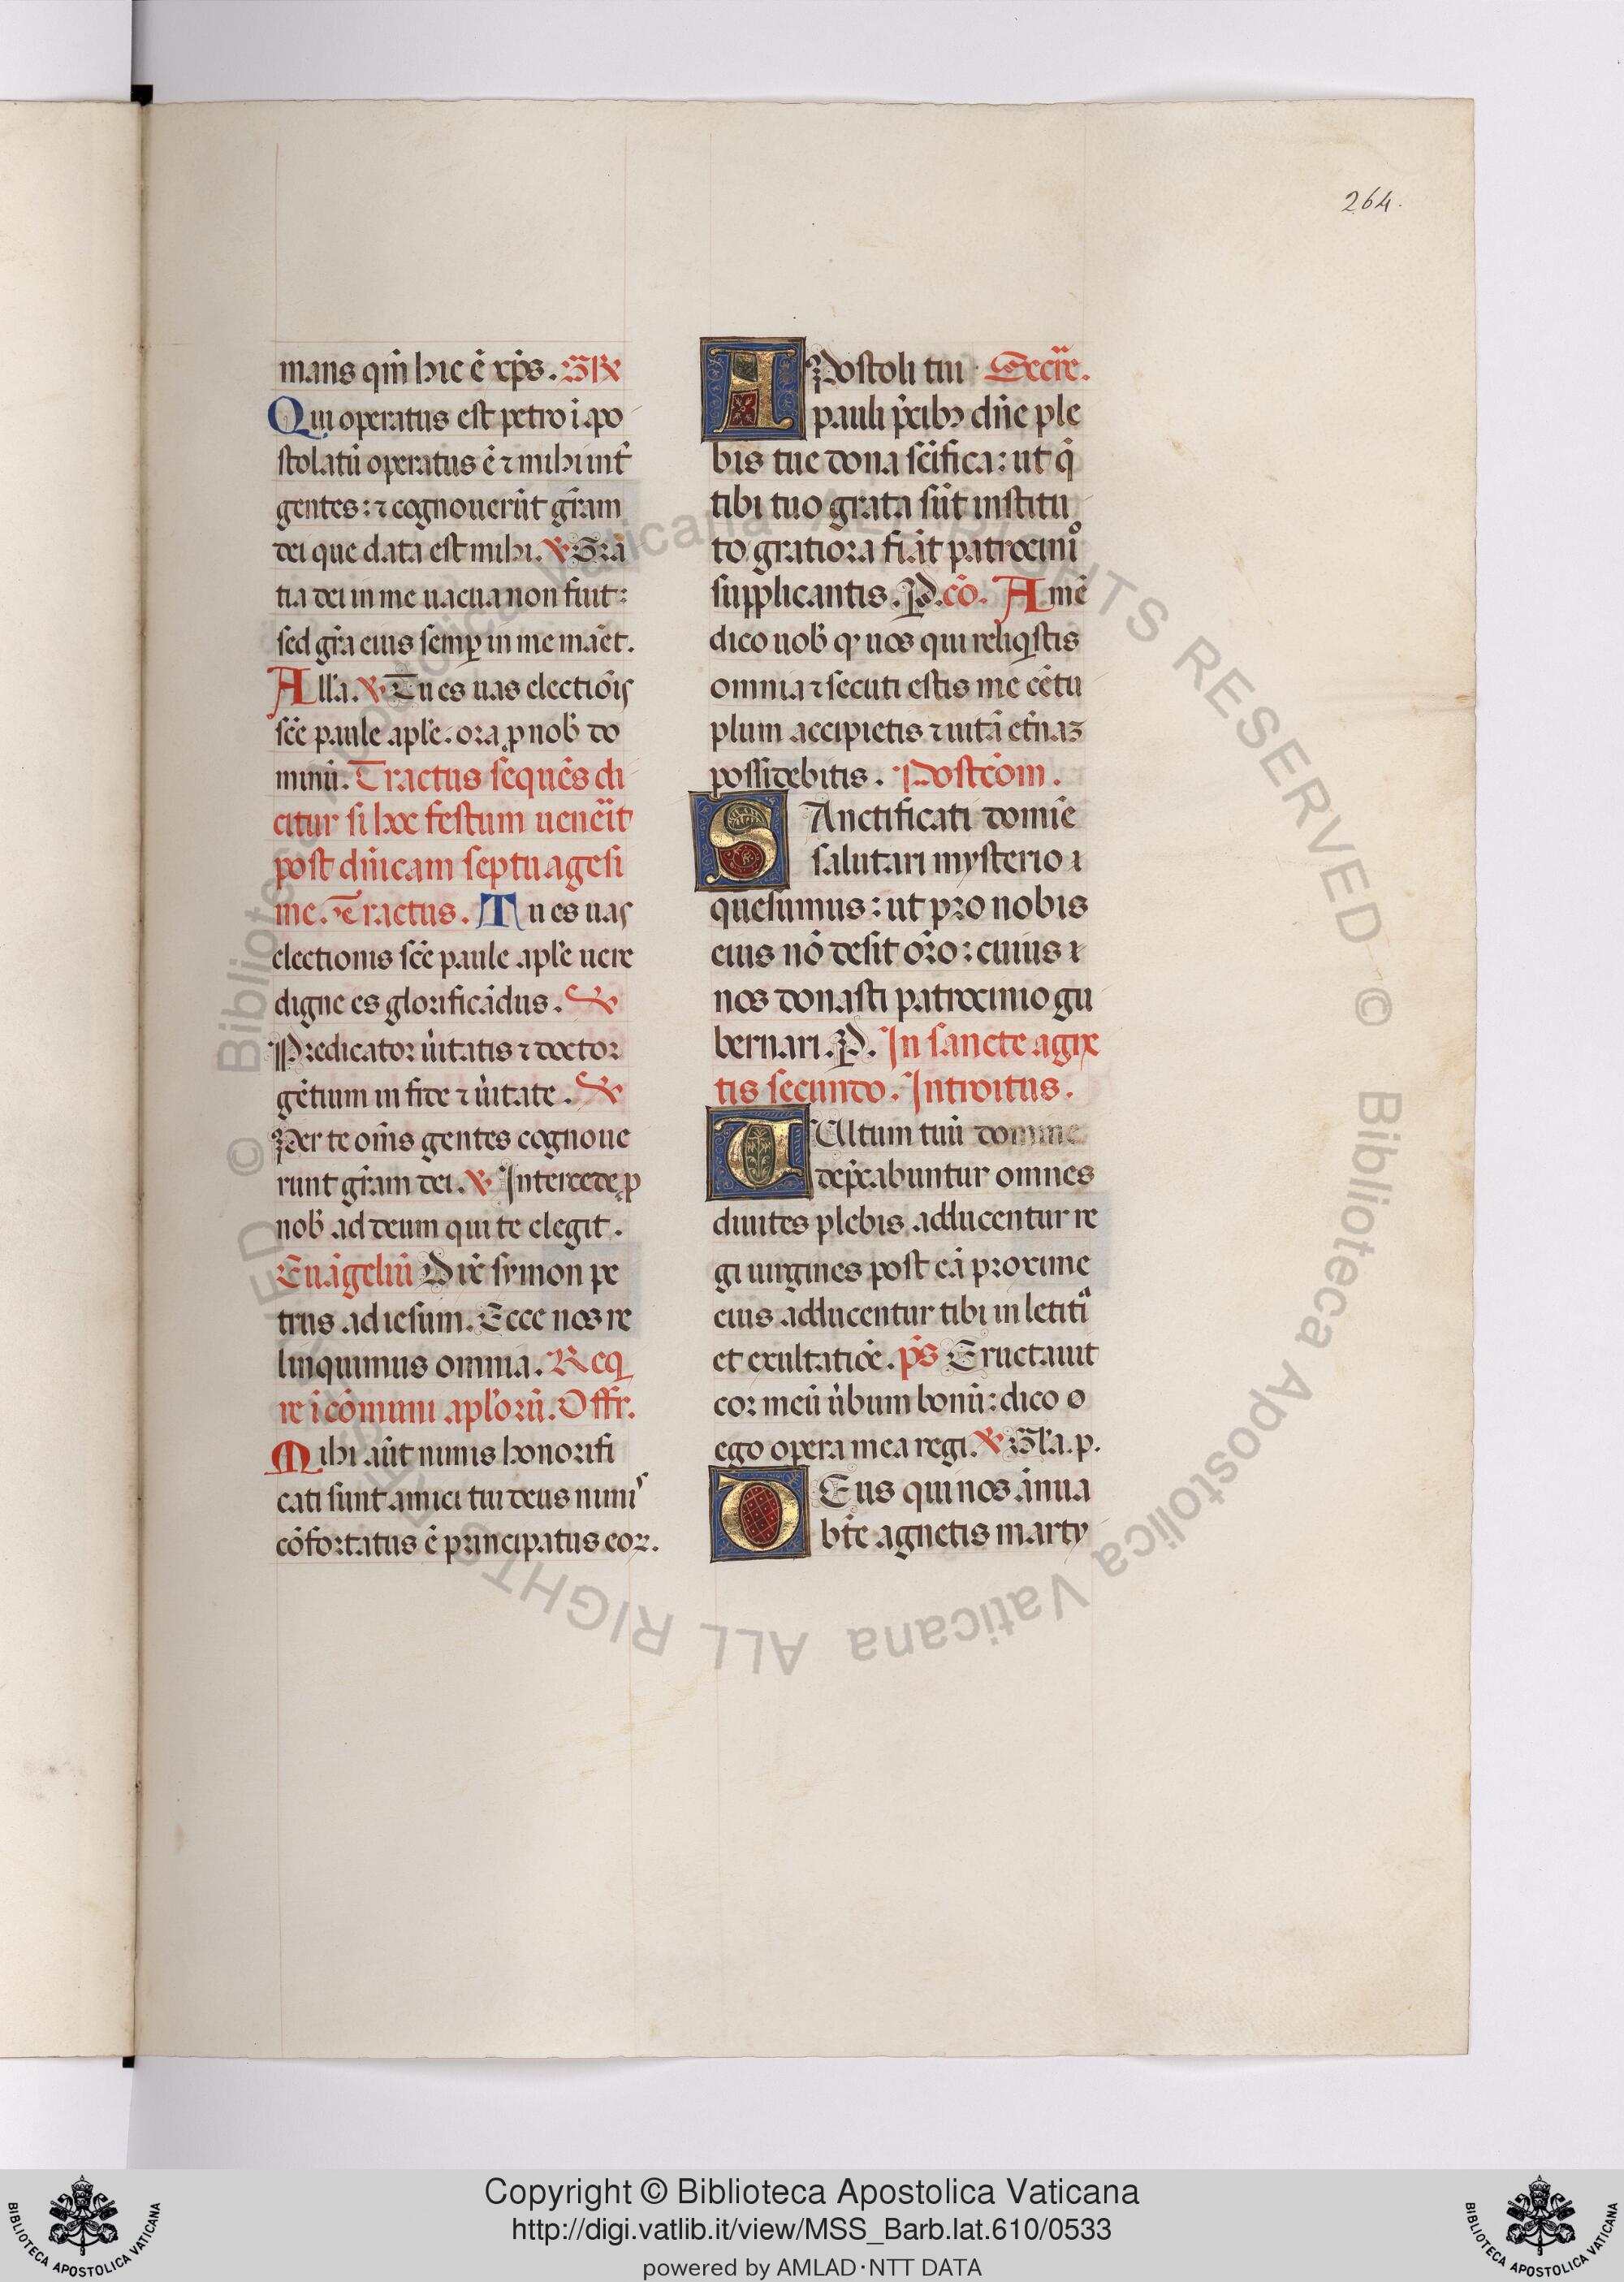 264.
mans qm̄ hic ē xp̄s. GR
Qui operatus est petro ī apo
stolatū operatus ē ⁊ mihi int̄
gentes: ⁊ cognouerūt gr̄am
dei que data est mihi. ℣ Gra
tia dei in me uacua non fuit:
sed gr̄a eius semꝑ in me manēt.
All'a. ℣ Tu es uas electiōis
sc̄e paule apl'e. ora ꝓ nob' do
minū. Tractus sequēs di
citur si hoc festum uenēit
post dn̄icam septuagesi
me. Tractus. Tu es uas
electionis sc̄e paule apl'e uere
digne es glorificādus. ℣
Predicator ūitatis ⁊ doctor
gētium in fide ⁊ ūitate. ℣
Per te om̄s gentes cognoue
runt gr̄am dei. ℣ Intercede ꝓ
nob' ad deum qui te elegit.
Euāgeliū Dix̄ symon pe
trus ad iesum. Ecce nos re
linquimus omnia. Req
re ī cōmuni apl'orū. Offr̄.
Mihi aūt nimis honorifi
cati sunt amici tui deus nimis
cōfortatus ē principatus eoꝝ.
APostoli tui Secr̄e.
pauli p̄cibꝫ dn̄e ple
bis tue dona sc̄ifica: ut q̄
tibi tuo grata sūt institu
to gratiora fiāt patrocinio
supplicantis. P. cō. Amē
dico uob' ꝙ uos qui reliq̇stis
omnia ⁊ secuti estis me cētu
plum accipietis ⁊ uitā et̄naꝫ
possidebitis. Postcōm.
SAnctificati domīe
salutari mysterio ⁊
quesumus: ut pro nobis
eius nō desit or̄o: cuius ⁊
nos donasti patrocinio gu
bernari. P. In sancte agne
tis secundo. Introitus.
VUltum tuū domine
dep̄cabuntur omnes
diuites plebis adducentur re
gi uirgines post eā proxime
eius adducentur tibi in letitia
et exultatiōe. ps̄ Eructauit
cor meū ūbum bonū: dico
ego opera mea regi. ℣ Gl'a. p.
DEus qui nos ānua
bt̄e agnetis marty
Copyright © Biblioteca Apostolica Vaticana
http://digi.vatlib.it/view/MSS_Barb.lat.610/0533
powered by AMLAD·NTT DATA
BIBLIOTECA APOSTOLICA VATICANA
BIBLIOTECA APOSTOLICA VATICANA
© Biblioteca Apostolica Vaticana ALL RIGHTS RESERVED © Biblioteca Apostolica Vaticana ALL RIGHTS RESERVED